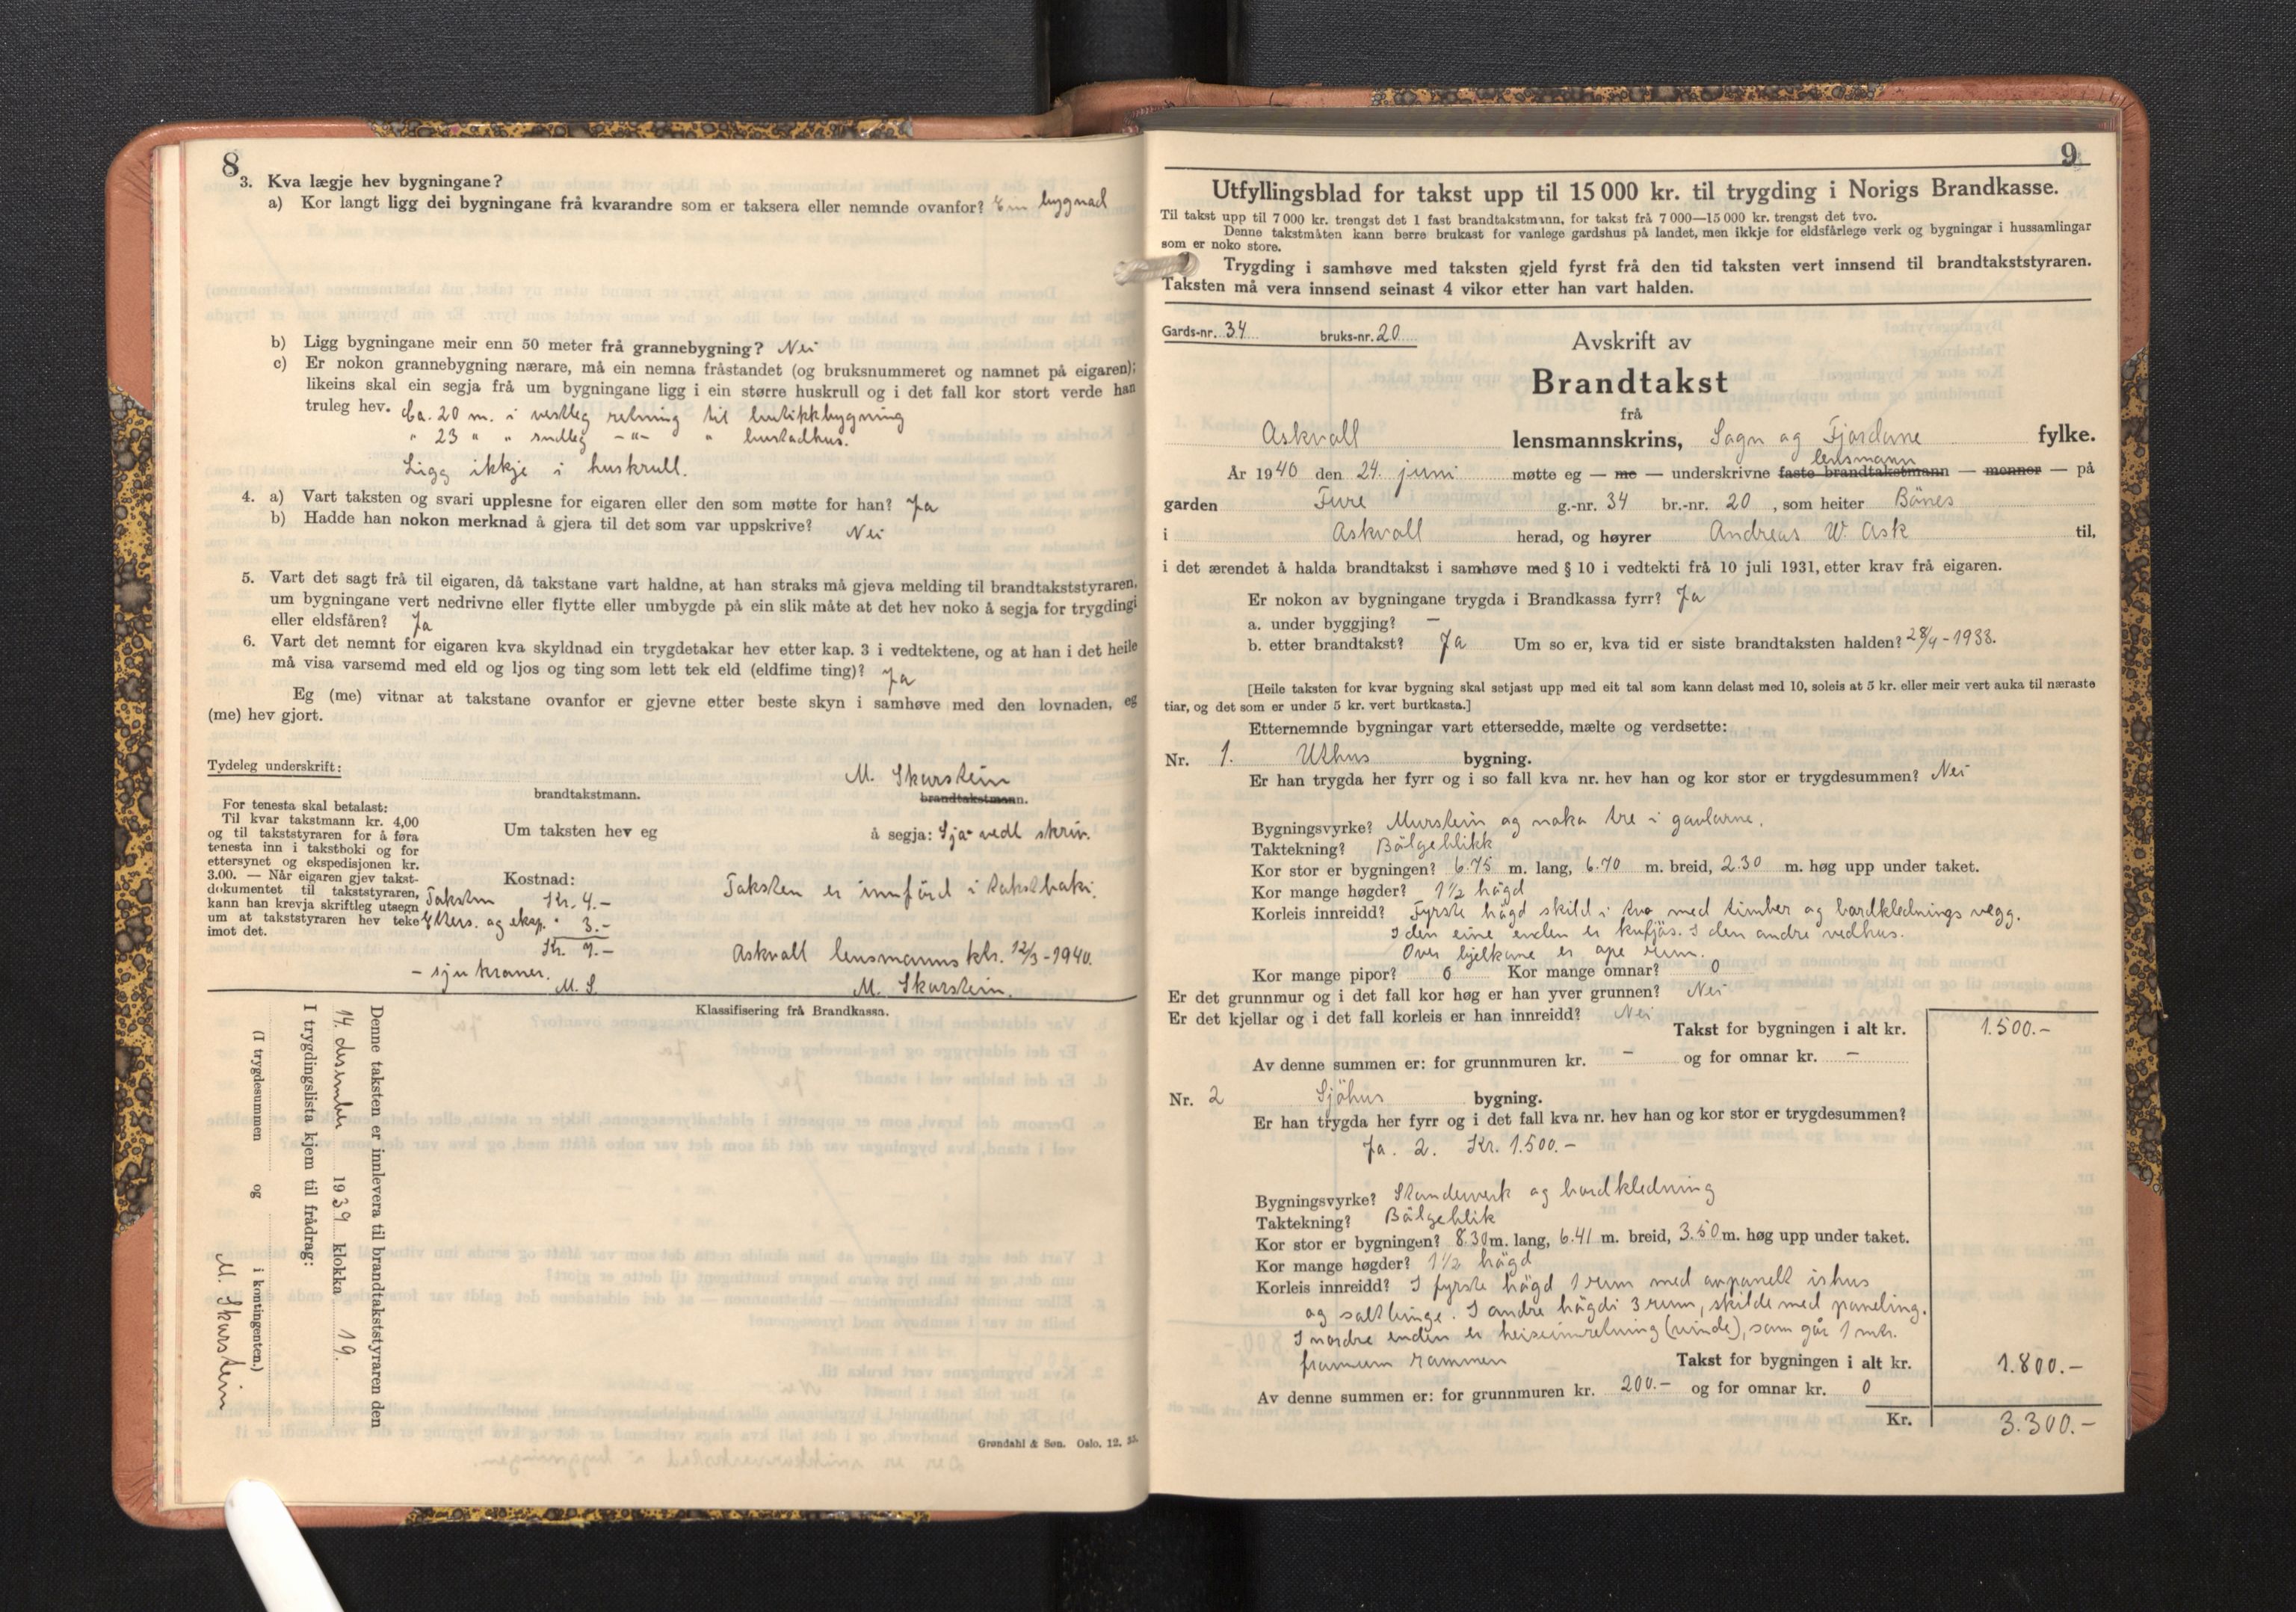 8
3. Kva lægje hev bygningane?
a) Kor langt ligg dei bygningane frå kvarandre som er taksera eller nemnde ovanfor? Ein bygnad
b) Ligg bygningane meir enn 50 meter frå grannebygning? Nei
c) Er nokon grannebygning nærare, må ein nemna fråstandet (og bruksnummeret og namnet på eigaren);
likeins skal ein segja frå um bygningane ligg i ein større huskrull og i det fall kor stort verde han
truleg hev. Ca. 20 m. i vestleg retning til butikkbygning
" 23 " " sudleg -"- " bustadhus.
Ligg ikkje i huskrull.
4. a) Vart taksten og svari upplesne for eigaren eller den som møtte for han? Ja
b) Hadde han nokon merknad å gjera til det som var uppskrive? Nei
5. Vart det sagt frå til eigaren, då takstane vart haldne, at han straks må gjeva melding til brandtakststyraren,
um bygningane vert nedrivne eller flytte eller umbygde på ein slik måte at det hev noko å segja for trygdingi
eller eldsfåren? Ja
6. Vart det nemnt for eigaren kva skyldnad ein trygdetakar hev etter kap. 3 i vedtektene, og at han i det heile
må visa varsemd med eld og ljos og ting som lett tek eld (eldfime ting)? Ja
Eg (me) vitnar at takstane ovanfor er gjevne etter beste skyn i samhøve med den lovnaden, eg
(me) hev gjort.
Tydeleg underskrift:
M. Skarstein
brandtakstmann.
brandtakstmann.
For tenesta skal betalast:
Til kvar takstmann kr. 4,00
og til takststyraren for å føra
tenesta inn i takstboki og for
ettersynet og ekspedisjonen kr.
3.00. — Når eigaren gjev takst-
dokumentet til takststyraren,
kann han krevja skriftleg utsegn
um at takststyraren hev teke
imot det.
Um taksten hev eg å segja: Sjå vedl skriv.
Kostnad:
Taksten Kr. 4.-
Etters. og eksp. " 3.-
Kr. 7.-
- sju kroner.
M. S
Taksten er innförd i takstboki.
Askvoll lensmannsktr. 12/3-1940.
M. Skarstein.
Klassifisering frå Brandkassa.
Denne taksten er innlevera til brandtakststyraren den
14. desember 1939 klokka 19.
I trygdingslista kjem til frådrag:
(I trygdesummen og i kontingenten.)
M. Skarstein
Grøndahl & Søn. Oslo. 12. 35.
9
Utfyllingsblad for takst upp til 15 000 kr. til trygding i Norigs Brandkasse.
Til takst upp til 7 000 kr. trengst det 1 fast brandtakstmann, for takst frå 7 000—15 000 kr. trengst det tvo.
Denne takstmåten kann berre brukast for vanlege gardshus på landet, men ikkje for eldsfårlege verk og bygningar i hussamlingar
som er noko store.
Trygding i samhøve med taksten gjeld fyrst frå den tid taksten vert innsend til brandtakststyraren.
Taksten må vera innsend seinast 4 vikor etter han vart halden.
Gards-nr. 34 bruks-nr. 20
Avskrift av
Brandtakst
frå
Askvoll lensmannskrins, Sogn og Fjordane fylke.
lensmann
År 1940 den 24. juni møtte eg — me — underskrivne faste brandtakstmann — menner — på
garden Fure g.-nr. 34 br.-nr. 20, som heiter Bönes
i Askvoll herad, og høyrer Andreas W. Ask til,
i det ærendet å halda brandtakst i samhøve med § 10 i vedtekti frå 10 juli 1931, etter krav frå eigaren.
Er nokon av bygningane trygda i Brandkassa fyrr? Ja
a. under byggjing? —
b. etter brandtakst? Ja Um so er, kva tid er siste brandtaksten halden? 28/4-1933.
[Heile taksten for kvar bygning skal setjast upp med eit tal som kann delast med 10, soleis at 5 kr. eller meir vert auka til næraste
tiar, og det som er under 5 kr. vert burtkasta.]
Etternemnde bygningar vart ettersedde, mælte og verdsette:
Nr. 1. Uthus bygning.
Er han trygda her fyrr og i so fall kva nr. hev han og kor stor er trygdesummen? Nei
Bygningsvyrke? Murstein og noko tre i gavlane.
Taktekning? Bölgeblikk
Kor stor er bygningen? 6.75 m. lang, 6.70 m. breid, 2.30 m. høg upp under taket.
Kor mange høgder? 1½ högd
Korleis innreidd? Fyrste högd skild i tvo med timber og bordklednings vegg.
I den eine enden er kufjös. I den andre vedhus.
Over bjelkane er ope rum.
Kor mange pipor? 0 Kor mange omnar? 0
Er det grunnmur og i det fall kor høg er han yver grunnen? Nei
Er det kjellar og i det fall korleis er han innreidd? Nei
Takst for bygningen i alt kr. 1.500.-
Av denne summen er: for grunnmuren kr. — og for omnar kr. —
Nr. 2 Sjöhus bygning.
Er han trygda her fyrr og i det fall kva nr. hev han og kor stor er trygdesummen?
Ja. 2. Kr. 1.500.-
Bygningsvyrke? Standerverk og bordkledning
Taktekning? Bölgeblik
Kor stor er bygningen? 8.30 m. lang, 6.41 m. breid, 3.50 m. høg upp under taket.
Kor mange høgder? 1½ högd
Korleis innreidd? I fyrste högd 1 rum med avpanelt ishus
og saltbinge. I andre högdi 3 rum, skilde med paneling.
I nordre enden er heiseinretning (vinde), som går 1 mtr.
framum rammen
Takst for bygningen i alt kr. 1.800.-
Av denne summen er: for grunnmuren kr. 200.- og for omnar kr. 0
Kr. 3.300.-